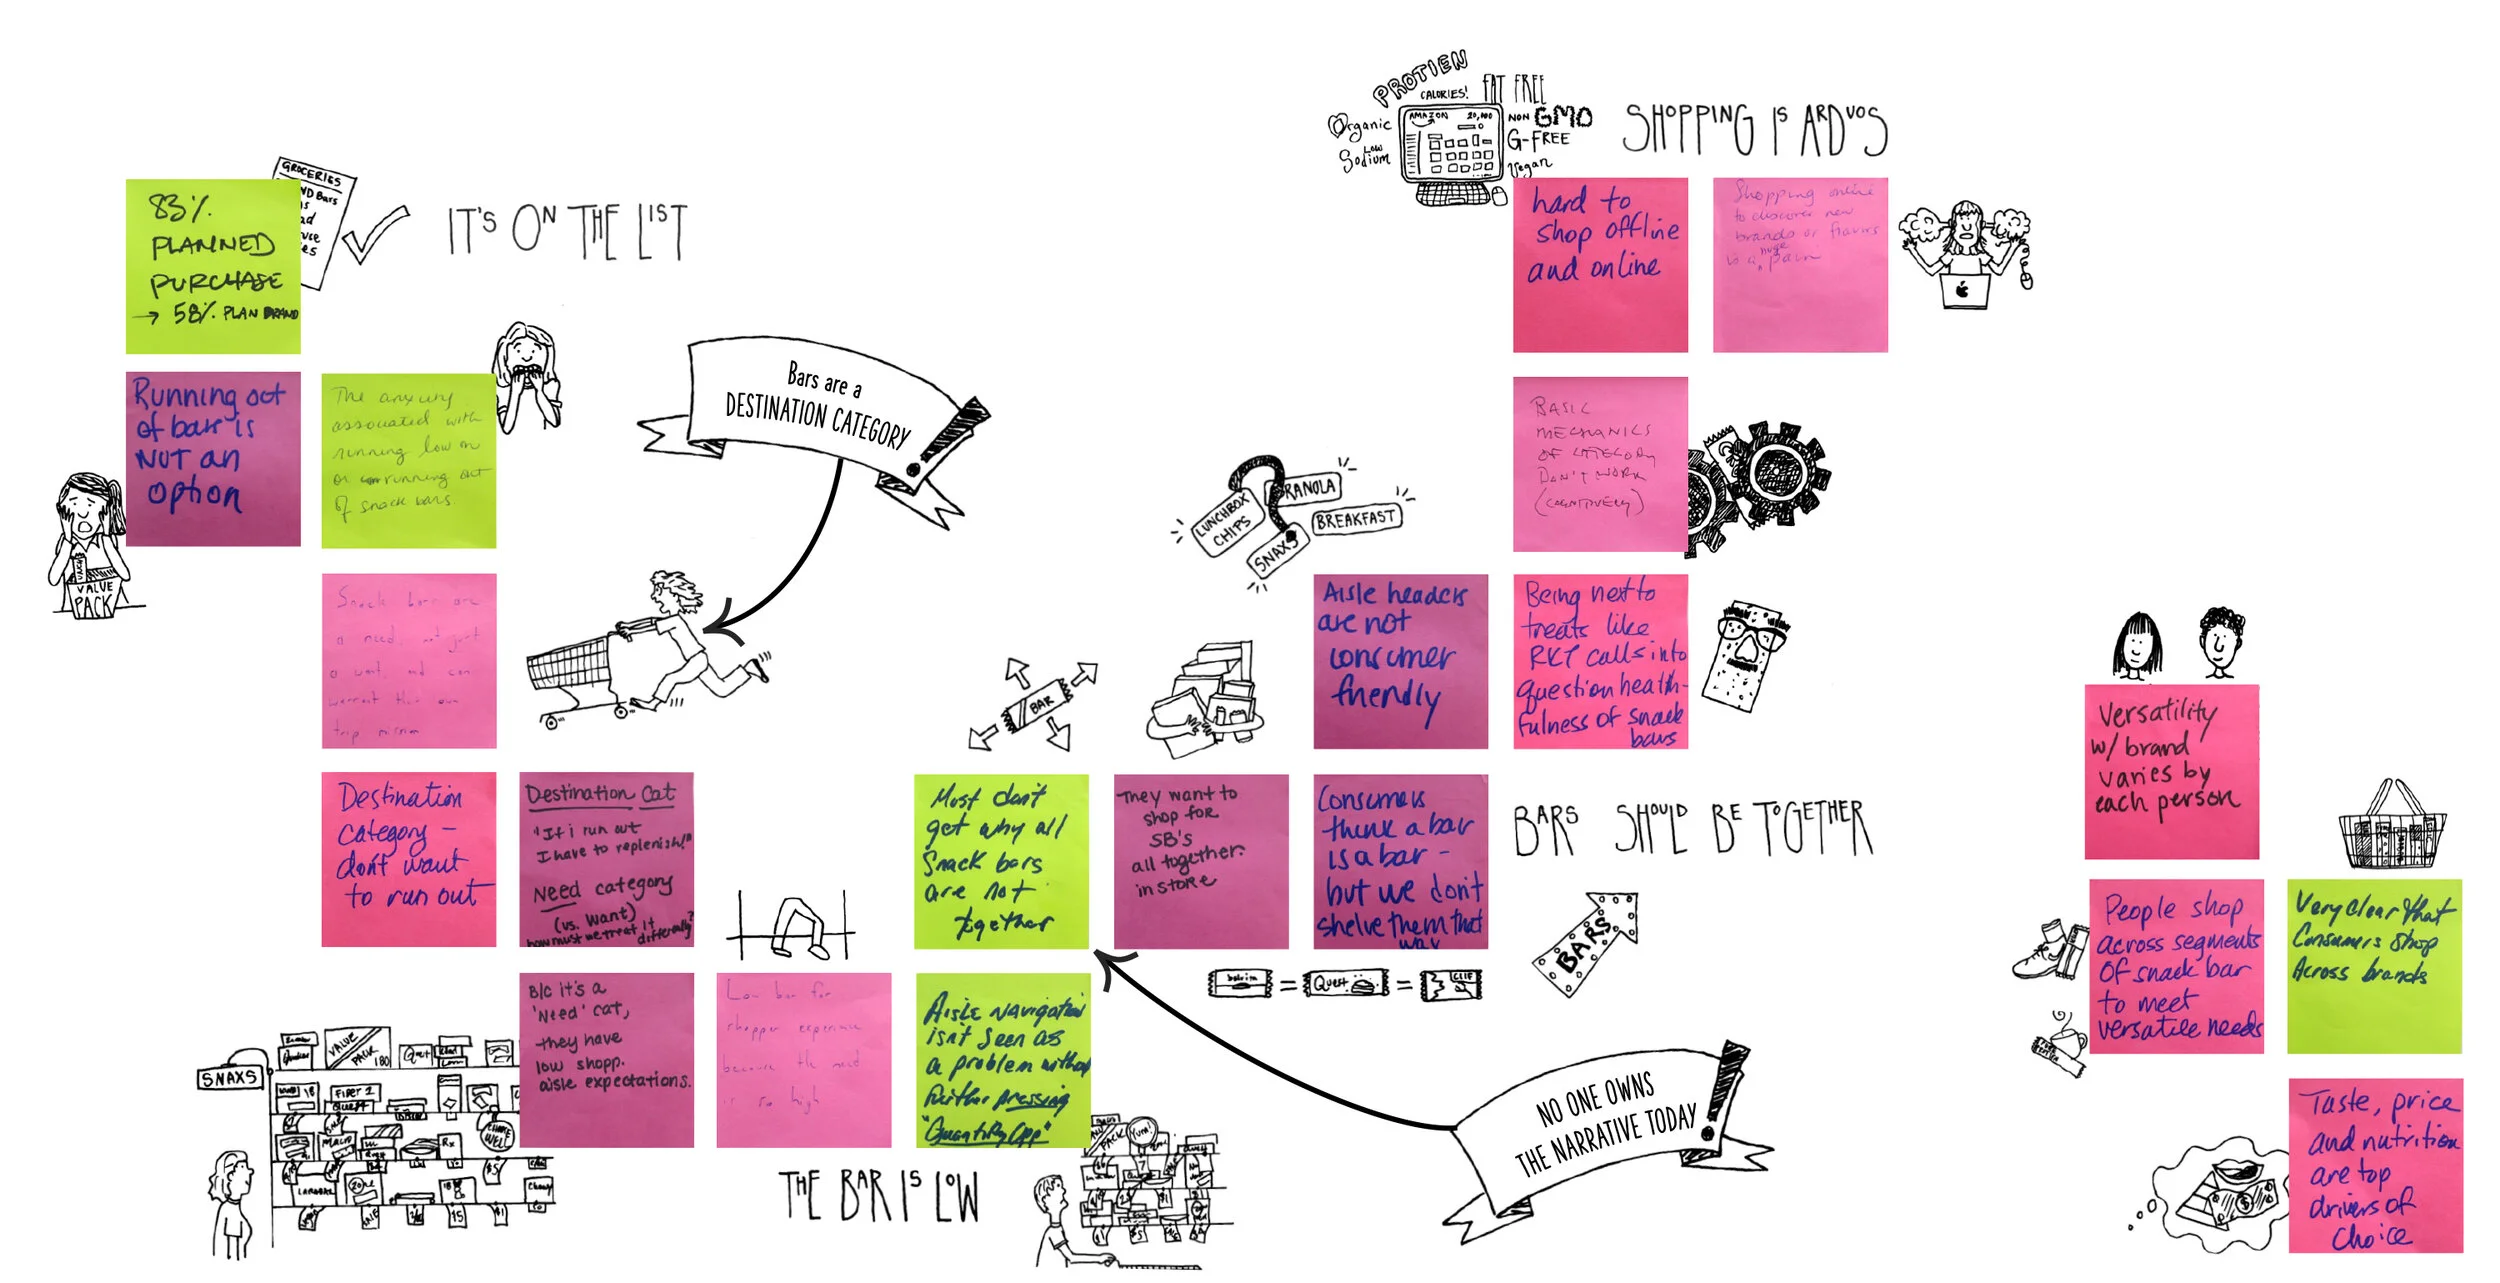 GROCERIES
83%
PLANNED
PURCHASE
→ 58% PLAN BRAND
IT'S ON THE LIST
Running out
of bars is
NOT an
option
The anxiety
associated with
running low on
or running out
of snack bars
VALUE
PACK
Bars are a
DESTINATION CATEGORY!
Snack bars are
a need, not just
a want, and can
warrant their own
trip mission
Destination
category –
don't want
to run out
Destination Cat
"If i run out
I have to replenish!"
Need category
(vs. want)
how must we treat it
differently?
B/c it's a
'Need' cat,
they have
low shopp.
aisle expectations.
Low bar for
shopper experience
because the need
is so high
Aisle navigation
isn't seen as
a problem without
further pressing
"Quantify Opp"
THE BAR IS LOW
SNAXS
VALUE
PACK
180
Quest
FIBER 1
QUEST
LARABAR
$5
$1
BAR
Must don't
get why all
Snack bars
are not
together
They want to
shop for
SB's
all together.
in store
Consumers
think a bar
is a bar –
but we don't
shelve them that
way
BARS SHOULD BE TOGETHER
BARS
= Quest = CLIF
NO ONE OWNS
THE NARRATIVE TODAY!
LUNCHBOX
CHIPS
RANOLA
BREAKFAST
SNAXS
Aisle headers
are not
consumer
friendly
Being next to
treats like
RKT calls into
question health-
fulness of snack
bars
BASIC
MECHANICS
OF CATEGORY
DON'T WORK
(COGNITIVELY)
PROTIEN
CALORIES!
FAT FREE
Organic
Low
Sodium
AMAZON 20,000
NON GMO
G-FREE
Vegan
SHOPPING IS ARDUOS
hard to
shop offline
and online
Shopping online
to discover new
brands or flavors
is a huge pain
Versatility
w/ brand
varies by
each person
People shop
across segments
of snack bar
to meet
versatile needs
Very clear that
Consumers shop
Across brands
Taste, price
and nutrition
are top
drivers of
choice